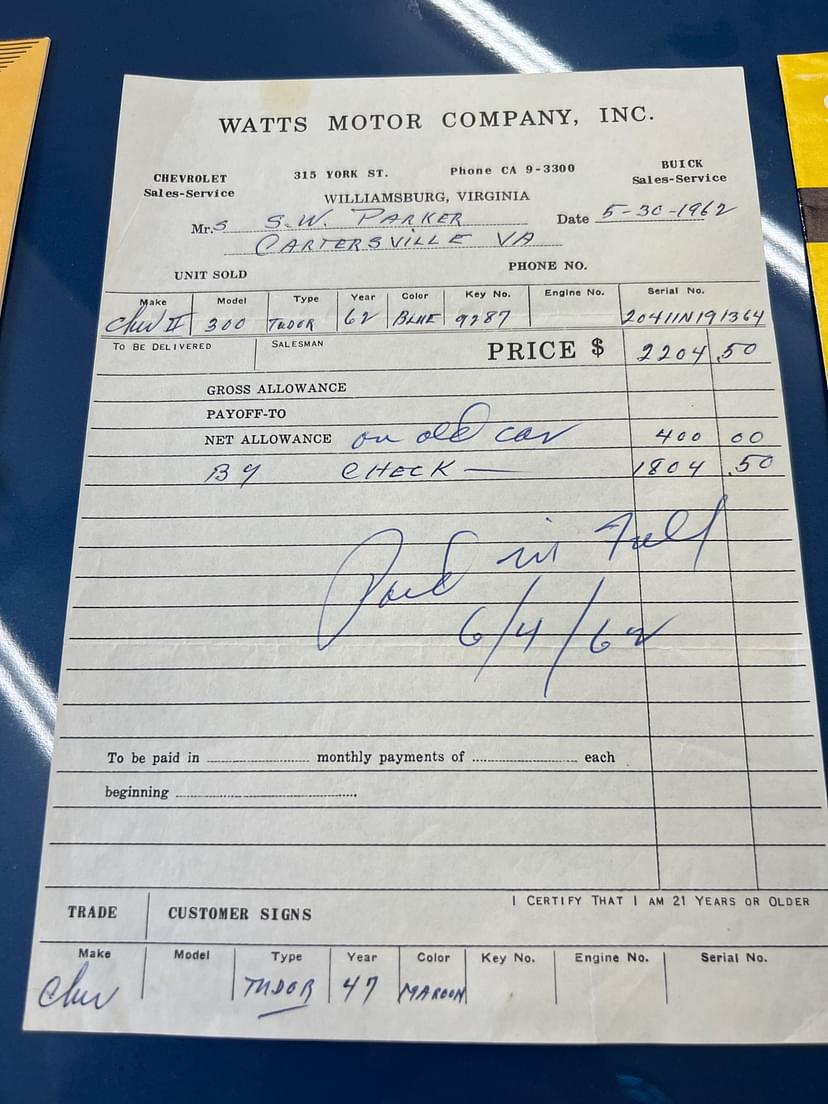 WATTS MOTOR COMPANY, INC.
CHEVROLET 315 YORK ST. Phone CA 9-3300 BUICK
Sales-Service Sales-Service
WILLIAMSBURG, VIRGINIA
Mr.s S.W. PARKER Date 5-30-1962
CARTERSVILLE VA
UNIT SOLD PHONE NO.
Make Model Type Year Color Key No. Engine No. Serial No.
Chev II 300 TUDOR 62 BLUE 9287 20411N191364
TO BE DELIVERED SALESMAN PRICE $ 2204.50
GROSS ALLOWANCE
PAYOFF-TO
NET ALLOWANCE on old car 400 00
BY CHECK — 1804.50
Paid in Full
6/4/62
To be paid in .......... monthly payments of .......... each
beginning ..........
I CERTIFY THAT I AM 21 YEARS OR OLDER
TRADE CUSTOMER SIGNS
Make Model Type Year Color Key No. Engine No. Serial No.
Chev TUDOR 47 MAROON